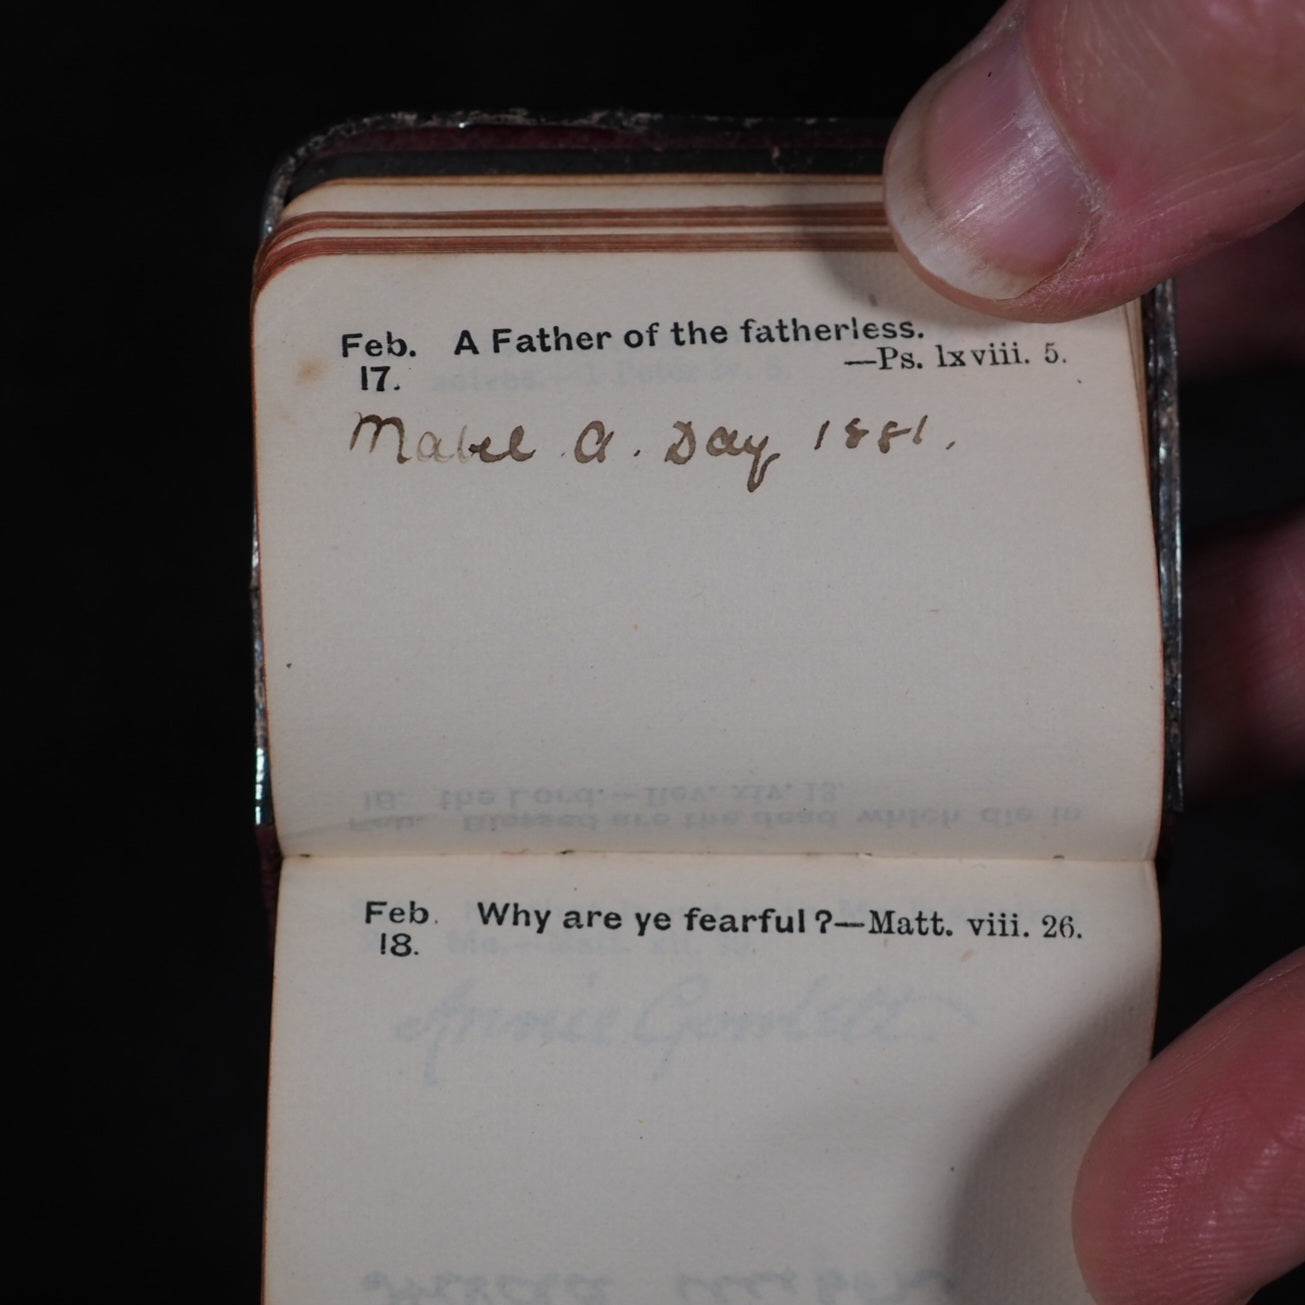 Feb. A Father of the fatherless.
17. —Ps. lxviii. 5.
Mabel A. Day 1881.
Feb. Why are ye fearful?—Matt. viii. 26.
18.